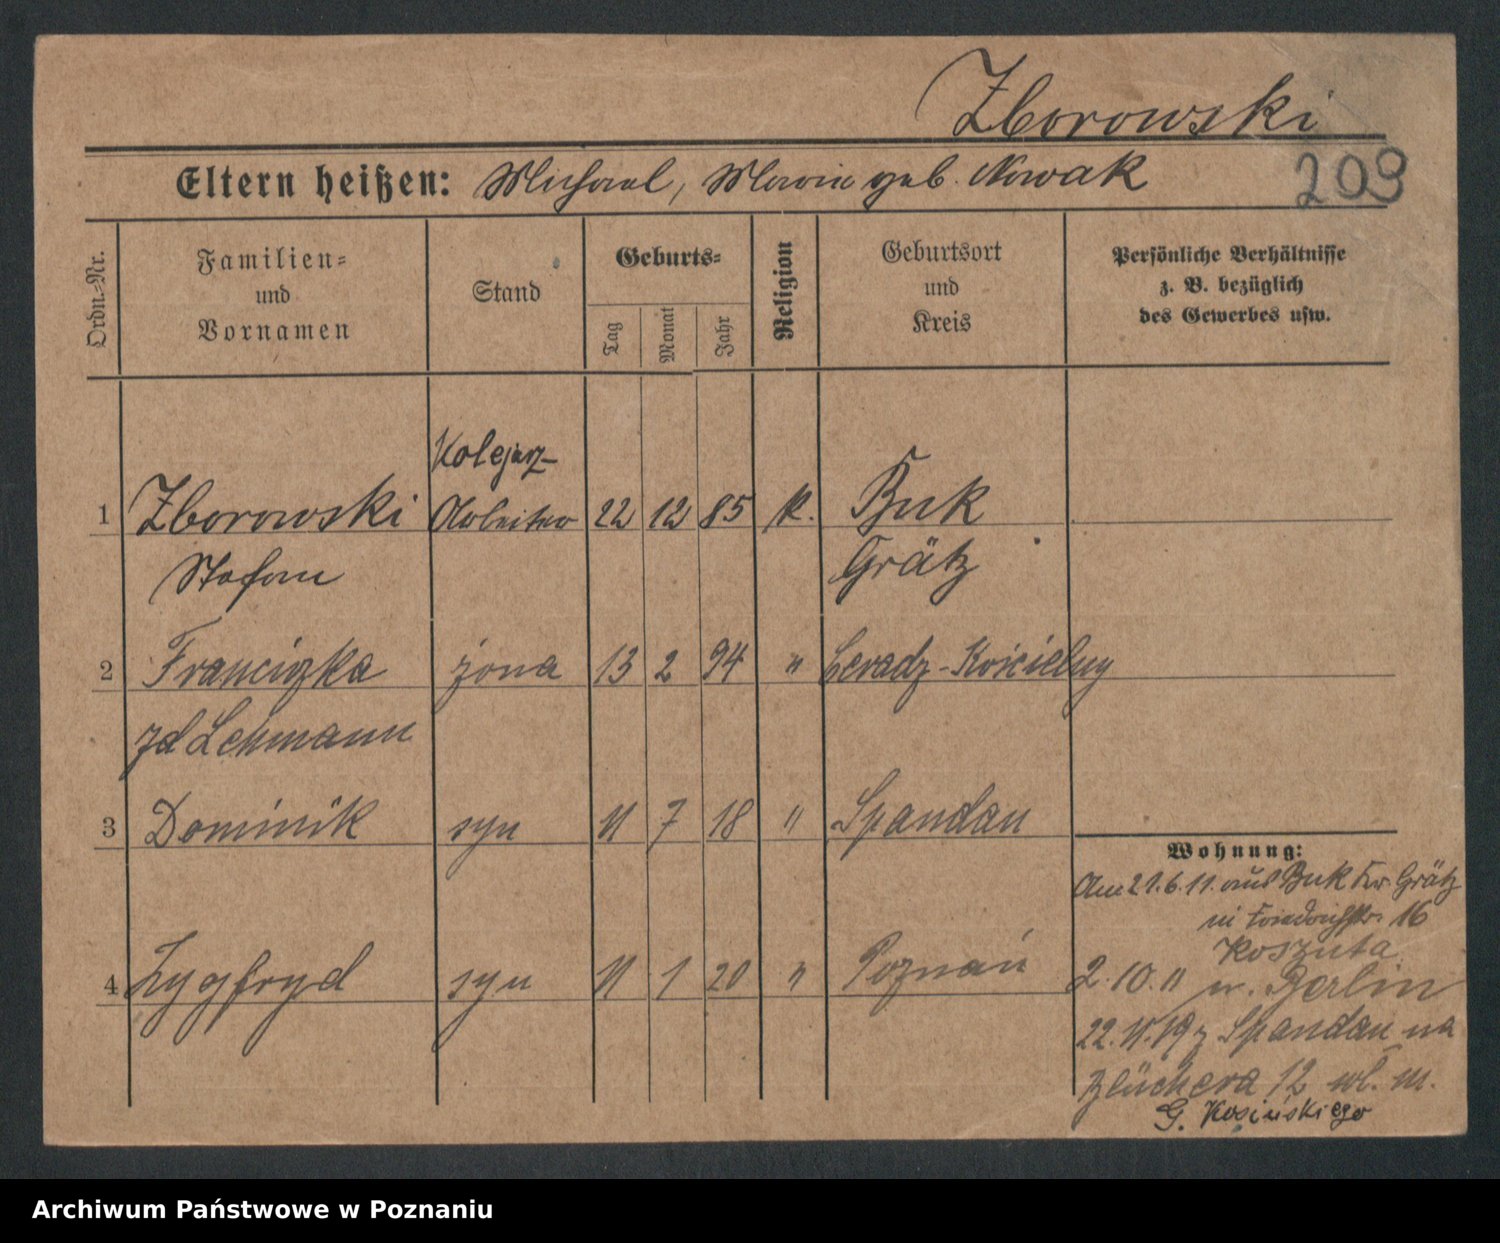 Zborowski
Eltern heißen: Michael, Maria geb. Nowak
209
Ordn.-Nr.
Familien-
und
Vornamen
Stand
Geburts-
Tag
Monat
Jahr
Religion
Geburtsort
und
Kreis
Persönliche Verhältnisse
z. B. bezüglich
des Gewerbes usw.
Kolejarz
1 Zborowski Arbeiter 22 12 85 k. Buk
Stefan Grätz
2 Franciszka żona 13 2 94 " Ceradz-Kościelny
zd Lehmann
3 Dominik syn 11 7 18 " Spandau
Wohnung:
Am 21.6.11. aus Buk Kr. Grätz
in Friedrichstr. 16
Koszuta
4 Zygfryd syn 11 1 20 " Poznań
2.10.11 n. Berlin
22.11.19 z Spandau na
Blüchera 12 wl. m.
G. Kosińskiego
Archiwum Państwowe w Poznaniu